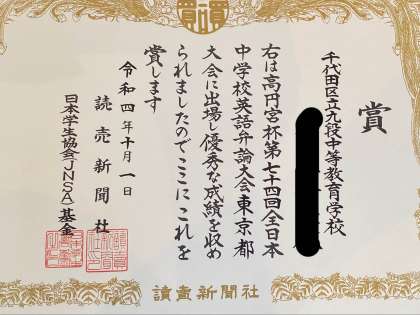 賞
千代田区立九段中等教育学校
右は高円宮杯第七十四回全日本
中学校英語弁論大会東京都
大会に出場し優秀な成績を収め
られましたのでここにこれを
賞します
令和四年十月一日
読売新聞社
日本学生協会(JNSA)基金
讀賣新聞社